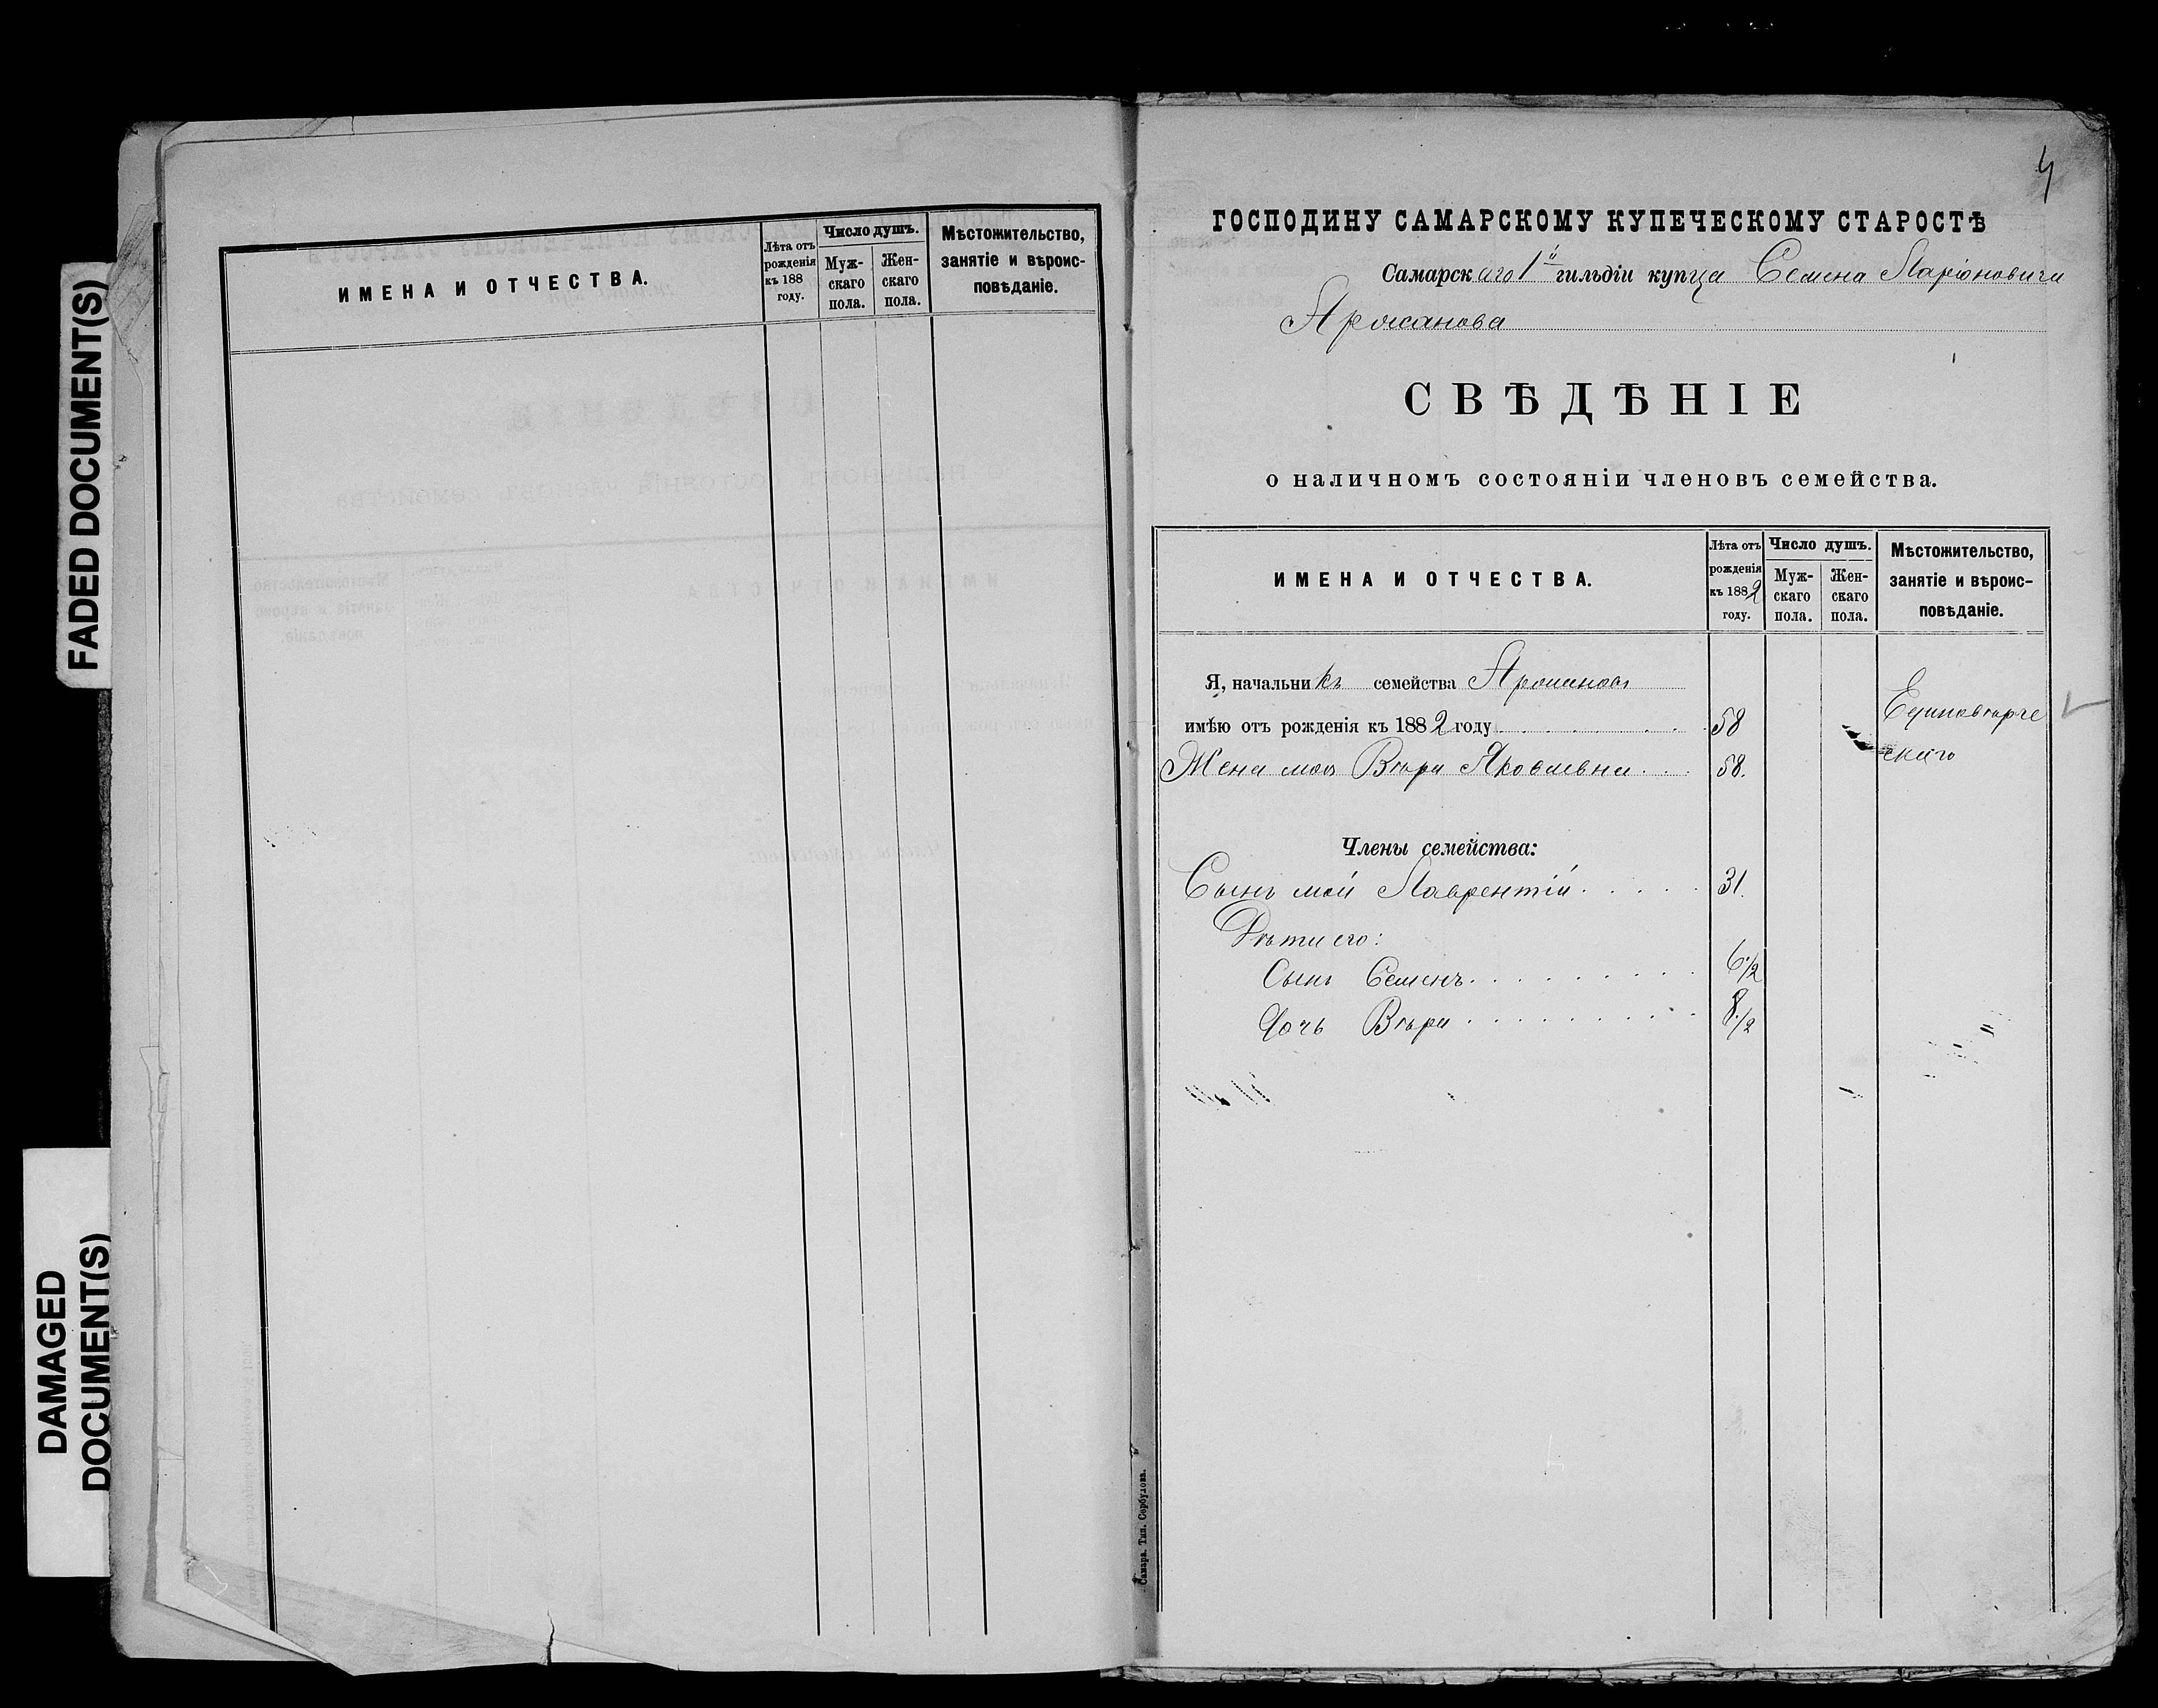 FADED DOCUMENT(S)
DAMAGED
DOCUMENT(S)
ИМЕНА И ОТЧЕСТВА.
Лѣта отъ
рожденія
къ 188
году.
Число душъ.
Муж-
скаго
пола.
Жен-
скаго
пола.
Мѣстожительство,
занятіе и вѣроис-
повѣданіе.
4
ГОСПОДИНУ САМАРСКОМУ КУПЕЧЕСКОМУ СТАРОСТѢ
Самарскаго 1й гильдіи купца Семена Ларіоновича
Аржанова
СВѢДѢНІЕ
о наличномъ состояніи членовъ семейства.
ИМЕНА И ОТЧЕСТВА.
Лѣта отъ
рожденія
къ 1882
году.
Число душъ.
Муж-
скаго
пола.
Жен-
скаго
пола.
Мѣстожительство,
занятіе и вѣроис-
повѣданіе.
Я, начальникъ семейства Аржановъ
имѣю отъ рожденія къ 1882 году 58 Единовѣрче
Жена моя Вѣра Яковлевна 58. скаго
Члены семейства:
Сынъ мой Лаврентій 31.
Дѣти его:
Сынъ Семенъ 6 1/2
Дочь Вѣра 8 1/2
Самара. Тип. Сербулова.